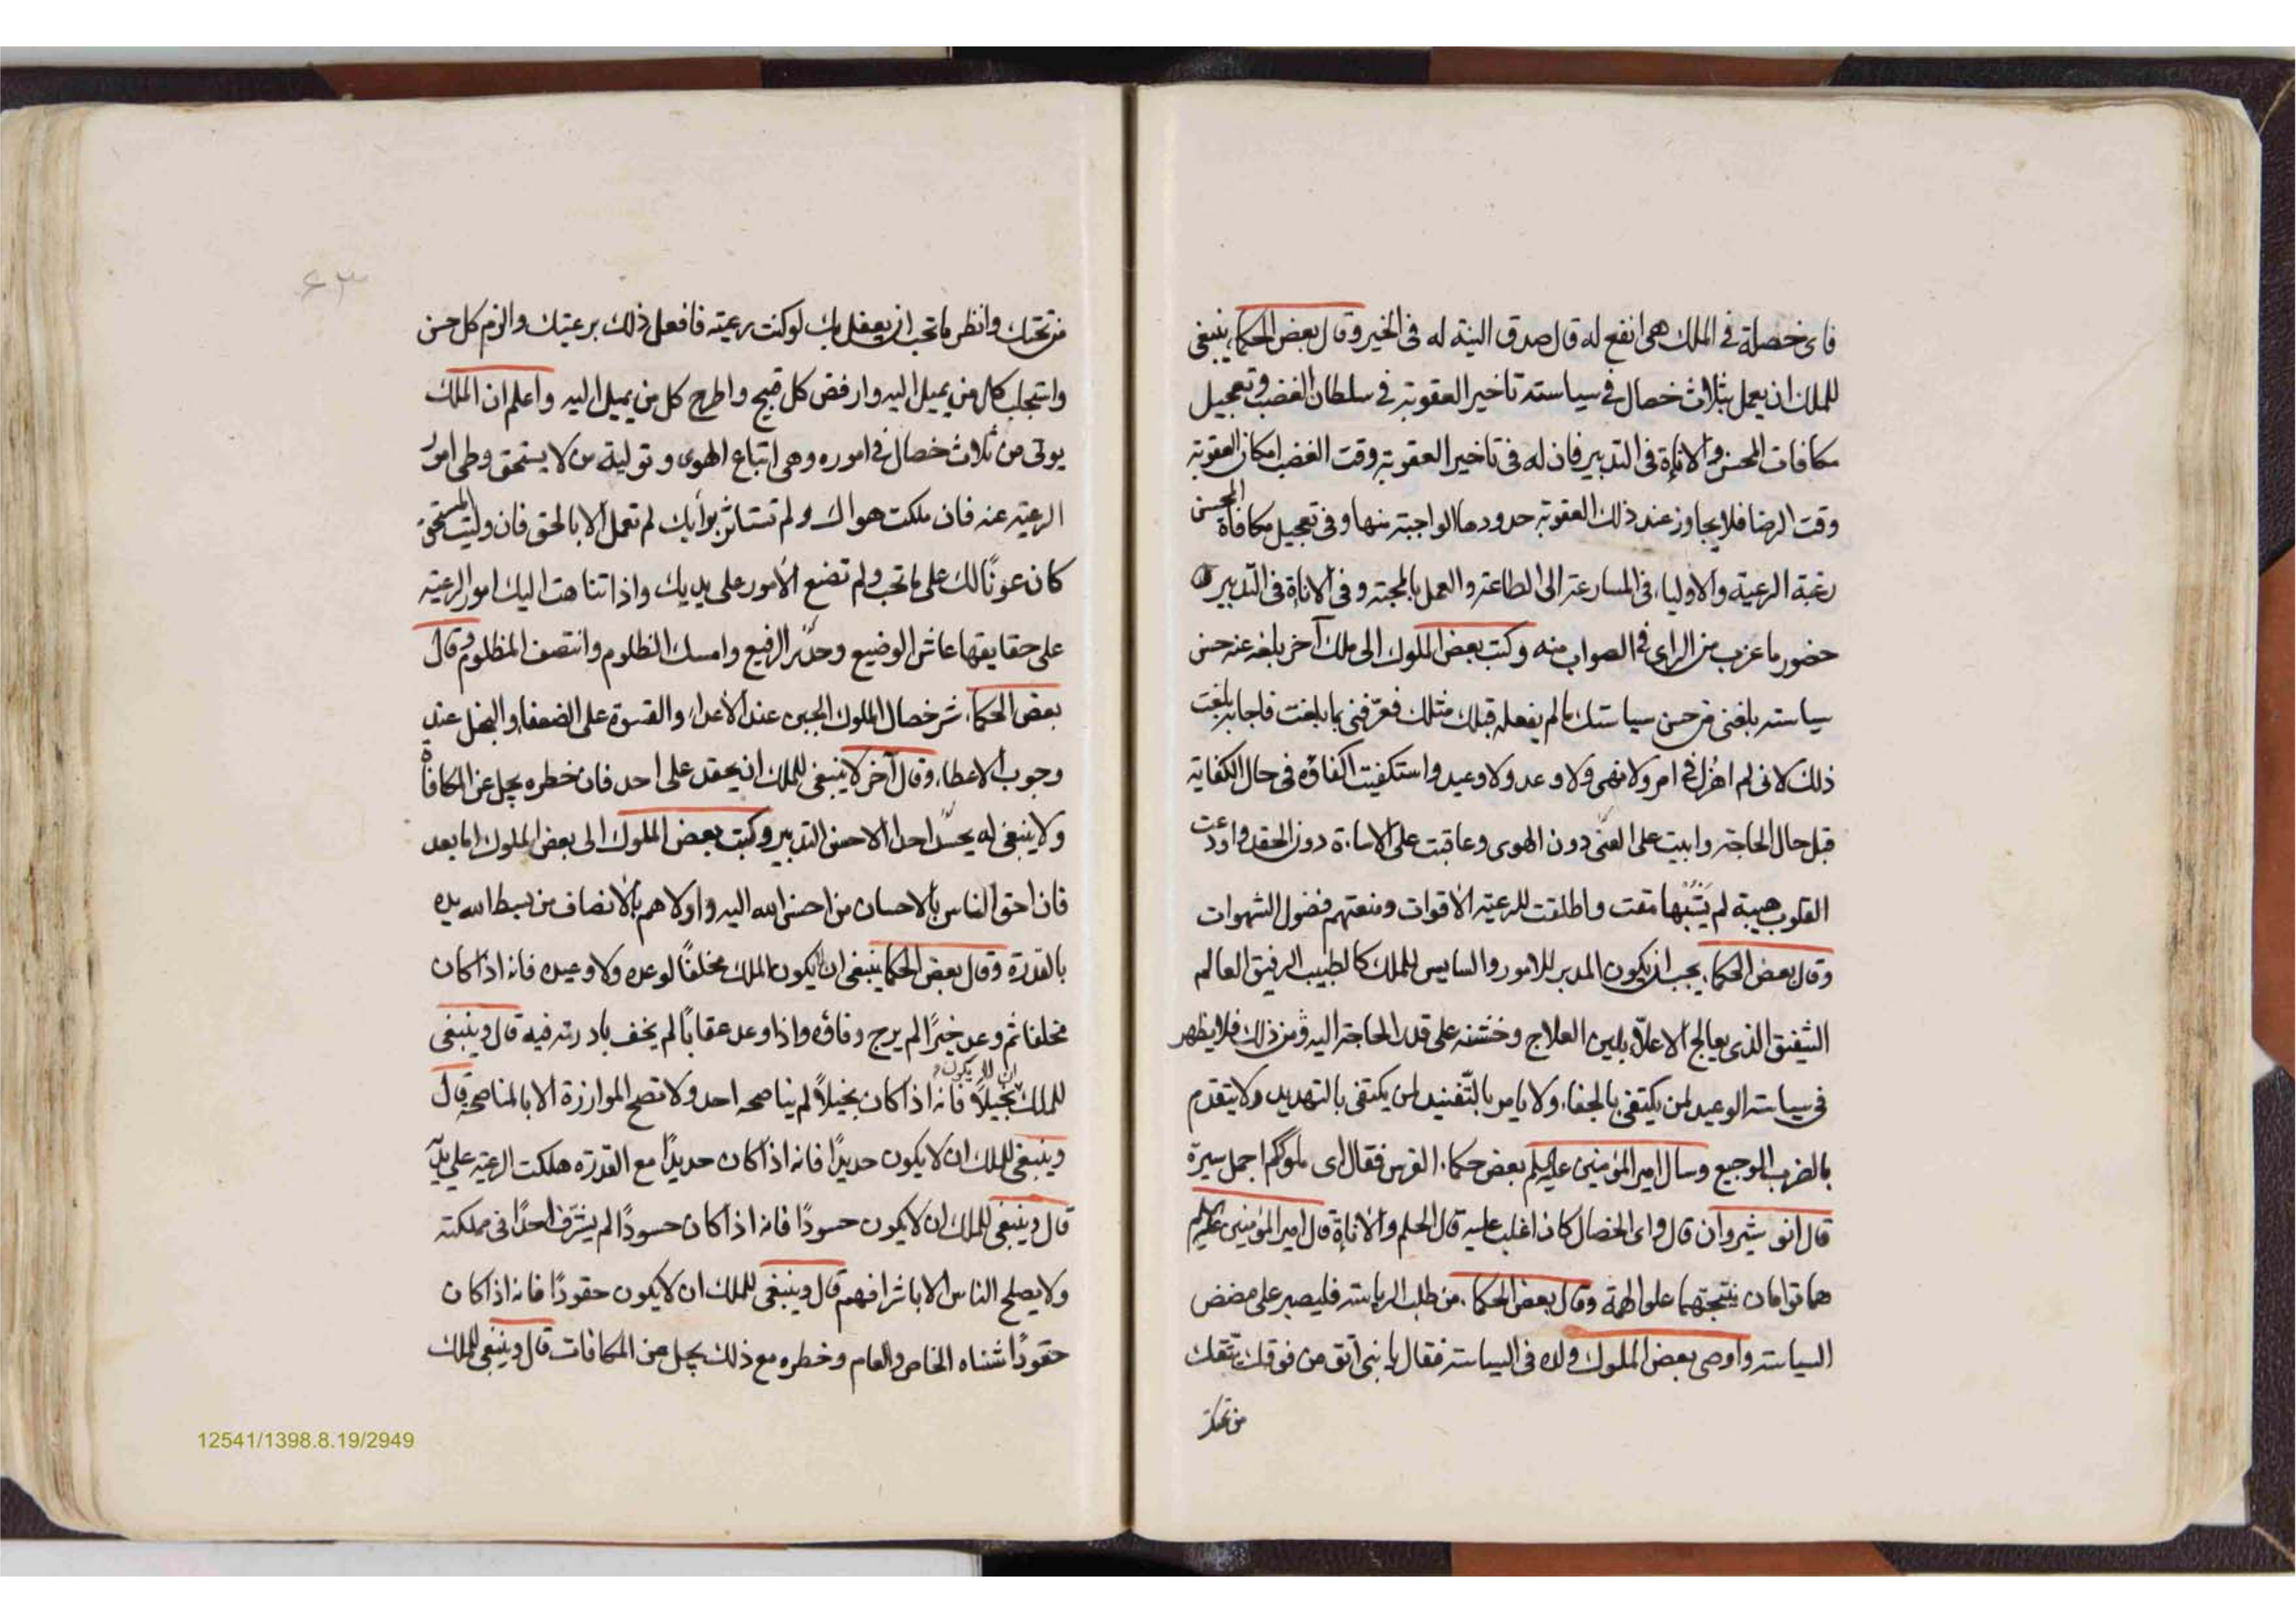 فای خصلة فی الملک هی انفع له قال صدق النیة له فی الخیر وقال بعض الحکماء ینبغی
للملک ان یعمل بثلاث خصال فی سیاسته تاخیر العقوبة فی سلطان الغضب وتعجیل
مکافات المحسن والاناءة فی التدبیر فان له فی تاخیر العقوبة وقت الغضب امکان العقوبة
وقت الرضا فلا یجاوز عند ذلک العقوبة حدودها الواجبة منها وفی تعجیل مکافاة المحسن
رغبة الرعیة والاولیاء فی المسارعة الی الطاعة والعمل بالمحبة وفی الاناءة فی التدبیر
حضور ما عزب من الرای فی الصواب منه وکتب بعض الملوک الی ملک آخر بلغه عنه حسن
سیاسته بلغنی من حسن سیاستک ما لم یفعله قبلک مثلک فعرّفنی بما بلغت فاجابه بلغت
ذلک لانی لم اهزل فی امر ولا نهی ولا وعد ولا وعید واستکفیت اکفاؤه فی حال الکفایة
قبل حال الحاجة واتیت علی الغنی دون الهوی وعاقبت علی الاساءة دون الحقد واودعت
القلوب هیبة لم یَشُبْها مقت واطلقت للرعیة الاقوات ومنعتهم فضول الشهوات
وقال بعض الحکماء یجب ان یکون المدبر للامور والسایس للملک کالطبیب الرفیق العالم
الشفیق الذی یعالج الاعلّا بلین العلاج وخشنه علی قدر الحاجة الیه ومن ذلک فلا یظهر
فی سیاسته الوعید لمن یکتفی بالجفاء ولا یامر بالتّفنید لمن یکتفی بالتهدید ولا یتقدم
بالضرب الوجیع وسال امیر المؤمنین علیه السلم بعض حکماء الفرس فقال ای ملوککم اجمل سیرة
قال انو شیروان قال وای الخصال کان اغلب علیه قال الحلم والاناءة قال امیر المؤمنین علیه السلم
هما توامان ینتجهما علو الهمة وقال بعض الحکماء من طلب الریاسة فلیصبر علی مضض
السیاسة واوصی بعض الملوک ولده فی السیاسة فقال یا بنی اتق من فوقک یتقک
من تحتک
۶۳
من تحتک وانظر ما تحب ان یفعل بک لو کنت رعیته فافعل ذلک برعیتک والزم کل حسن
واستجلب کل من یمیل الیه وارفض کل قبیح واطرح کل من یمیل الیه واعلم ان الملک
یوتی من ثلاث خصال فی اموره وهی اتباع الهوی وتولیة من لا یستحق وطی امور
الرعیة عنه فان ملکت هواک ولم تستاثر برأیک لم تعمل الا بالحق فان ولیت المستحق
کان عونًا لک علی ما تحب ولم تضع الأمور علی یدیک واذا تناهت الیک امور الرعیة
علی حقایقها عاش الوضیع وحذر الرفیع وامسک الظلوم وانتصف المظلوم وقال
بعض الحکماء شر خصال الملوک الجبن عند الأعداء والقسوة علی الضعفاء والبخل عند
وجوب الاعطاء وقال آخر لا ینبغی للملک ان یحقد علی احد فان خطره یجل عن المکافاة
ولا ینبغی له یحسد احدا الا حسن التدبیر وکتب بعض الملوک الی بعض الملوک اما بعد
فان احق الناس بالاحسان من احسن الله الیه واولاهم بالانصاف من بسط الله یده
بالقدرة وقال بعض الحکماء ینبغی ان لا یکون الملک مخلفًا لوعده ولا وعیده فانه اذا کان
مخلفا ثم وعد خیرًا لم یرج وفاؤه واذا وعد عقابًا لم یخف بادرته فیه قال وینبغی
للملک ان لا یکون بخیلاً فانه اذا کان بخیلاً لم یناصحه احد ولا تصح الموازرة الا بالمناصحة قال
وینبغی للملک ان لا یکون حدیدًا فانه اذا کان حدیدًا مع القدرة هلکت الرعیة علی یدیه
قال وینبغی للملک ان لا یکون حسودًا فانه اذا کان حسودًا لم یشرّف احدًا فی مملکته
ولا یصلح الناس الا باشرافهم قال وینبغی للملک ان لا یکون حقودًا فانه اذا کان
حقودًا شناه الخاص والعام وخطره مع ذلک یجل عن المکافات قال وینبغی للملک
12541/1398.8.19/2949